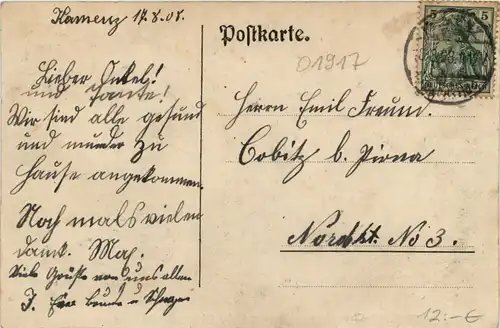 Kamenz 17.8.08.
Lieber Onkel!
und Tante!
Wir sind alle gesund
und munder zu
Hause angekommen.
Noch mals vielen
dank. Max.
Viele Grüße von uns allen
Postkarte.
01917
5 5
Herrn Emil Freund.
Cobitz b. Pirna
Nordstr. No 3.
12.- €